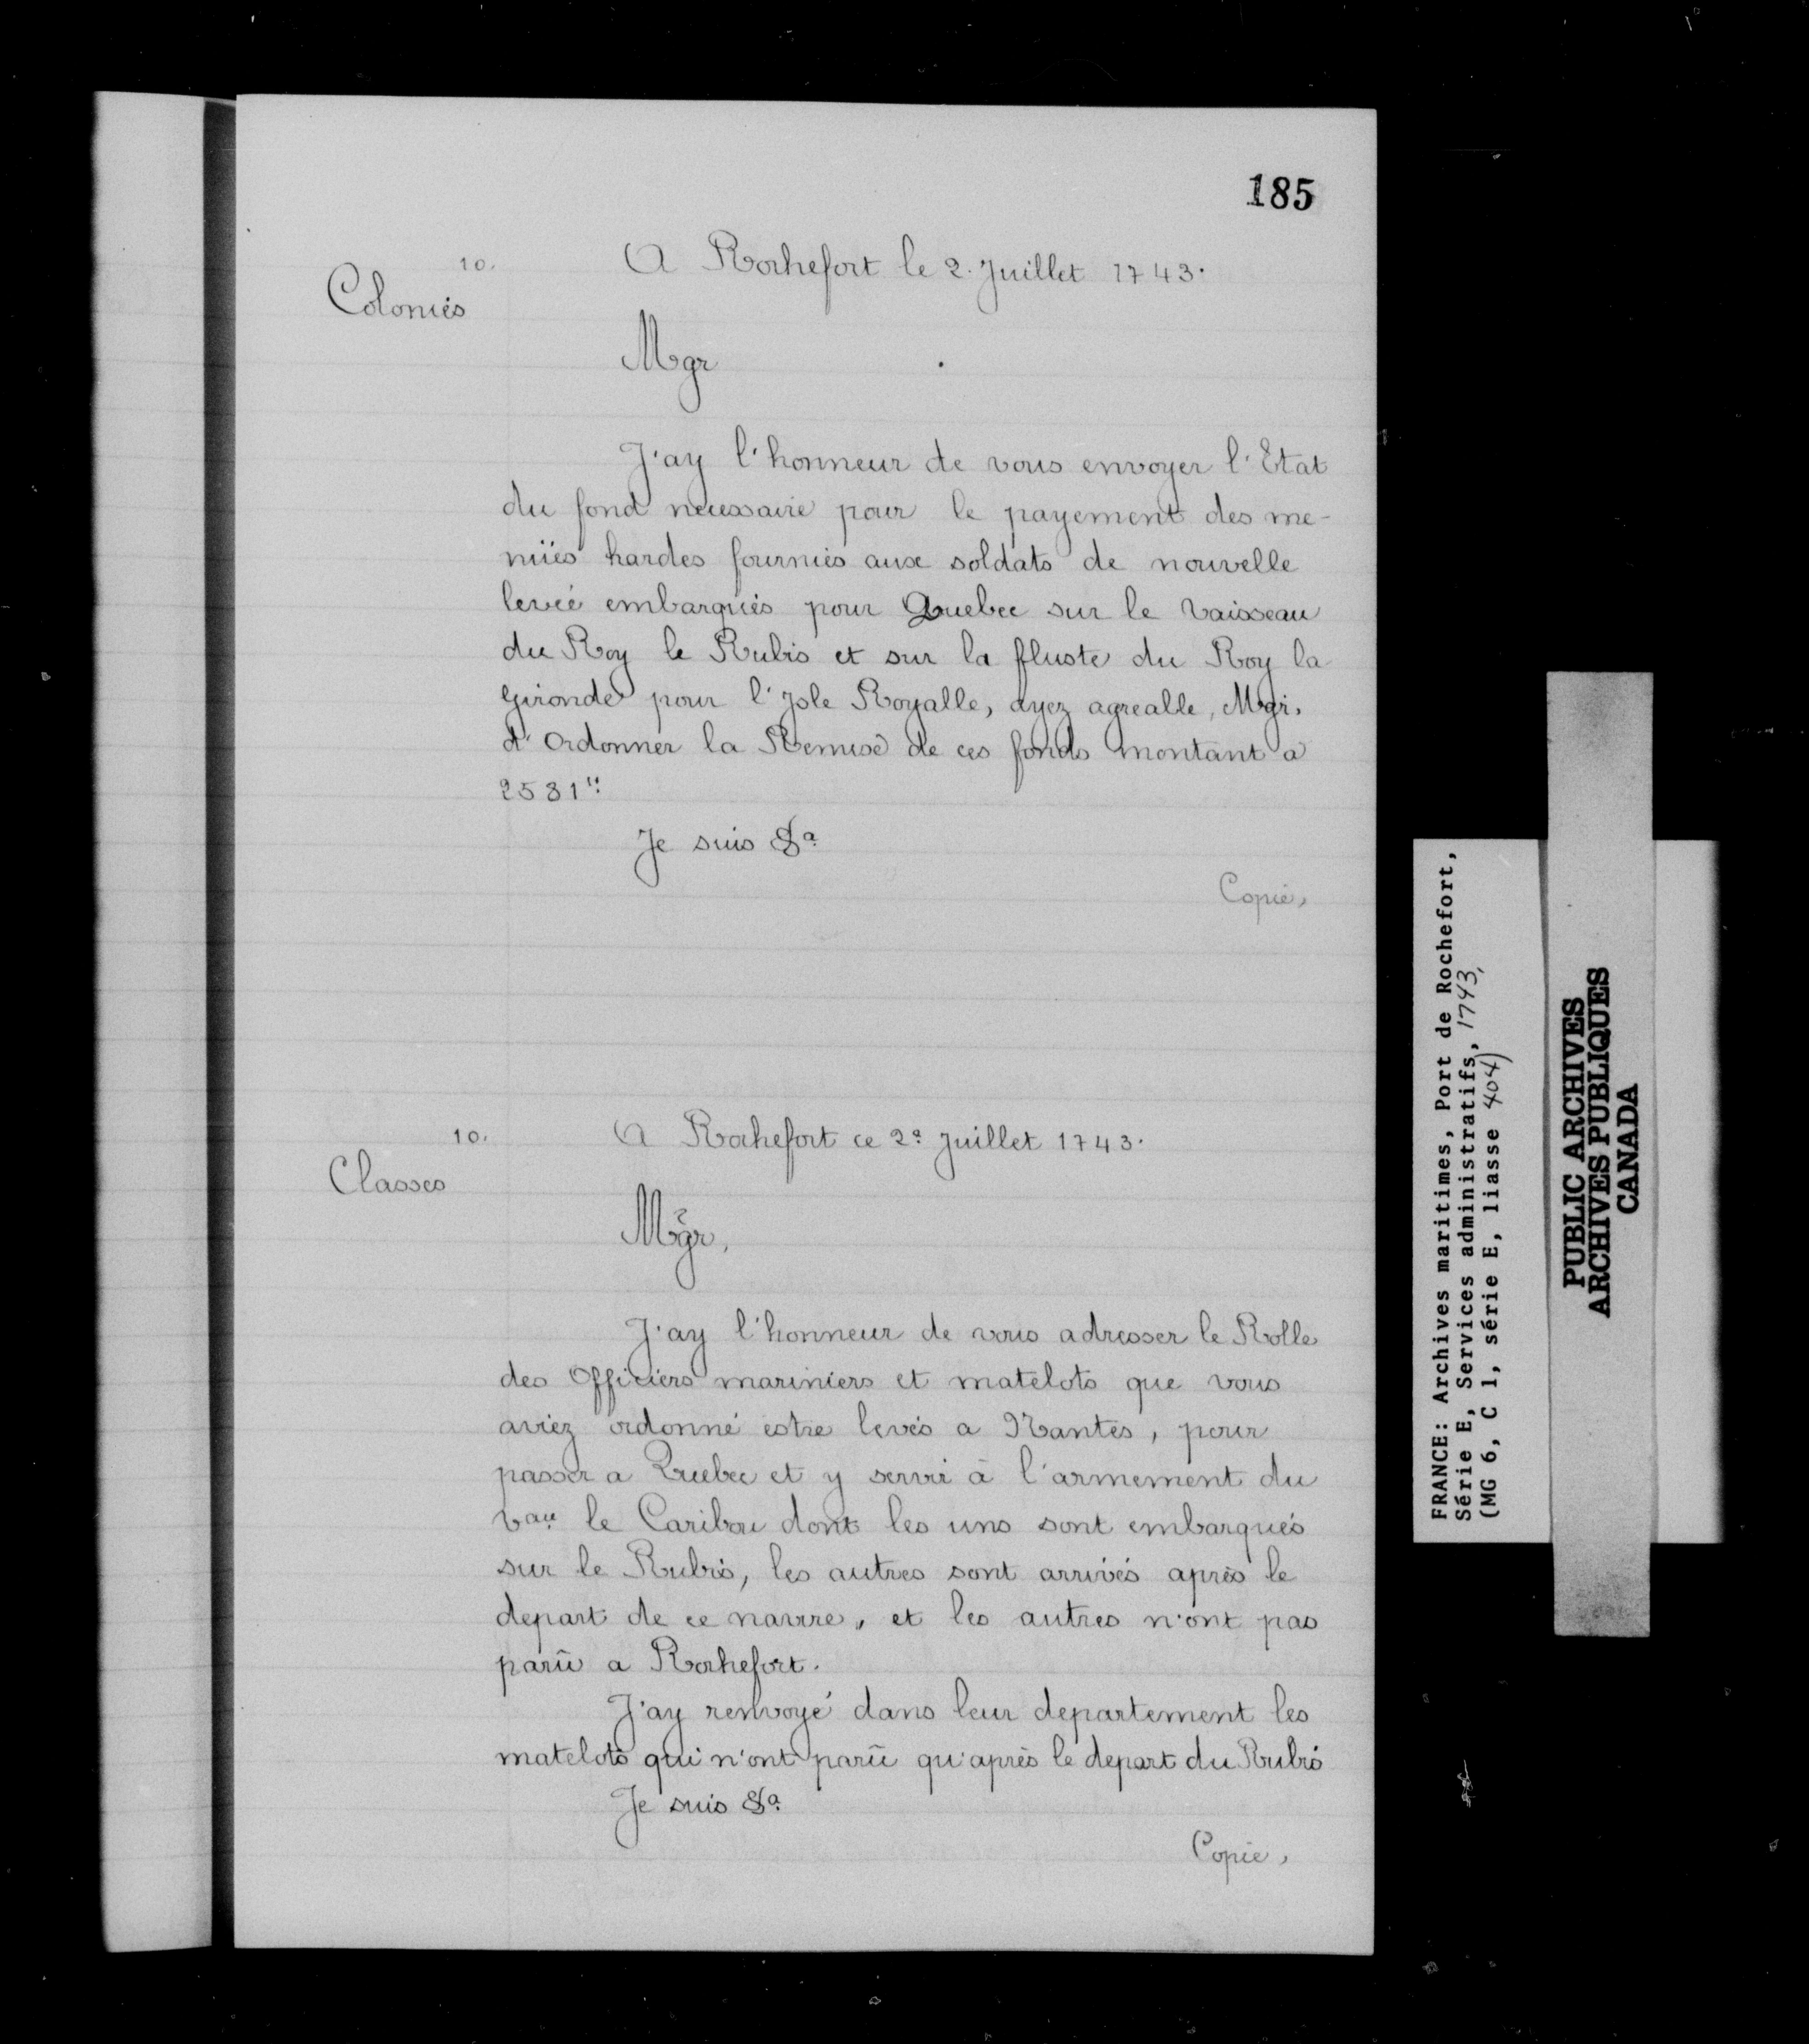 185
10.
A Rochefort le 2. Juillet 1743.
Colonies
Mgr
J'ay l'honneur de vous envoyer l'Etat
du fond necessaire pour le payement des me-
nües hardes fournies aux soldats de nouvelle
levée embarqués pour Quebec sur le Vaisseau
du Roy le Rubis et sur la ffluste du Roy la
Gironde pour l'Isle Royalle, ayez agreable, Mgr.
d'Ordonner la Remise de ces fonds montant a
2531"
Je suis &a
Copie,
10.
A Rochefort ce 2e Juillet 1743.
Classes
Mgr,
J'ay l'honneur de vous adresser le Rolle
des Officiers mariniers et matelots que vous
aviez ordonné estre levés a Nantes, pour
passer a Quebec et y servir à l'armement du
Vau le Caribou dont les uns sont embarqués
sur le Rubis, les autres sont arrivés après le
depart de ce navire, et les autres n'ont pas
parû a Rochefort.
J'ay renvoyé dans leur departement les
matelots qui n'ont parû qu'après le depart du Rubis
Je suis &a
Copie,
FRANCE: Archives maritimes, Port de Rochefort,
Série E, Services administratifs, 1743,
(MG 6, C 1, série E, liasse 404)
PUBLIC ARCHIVES
ARCHIVES PUBLIQUES
CANADA